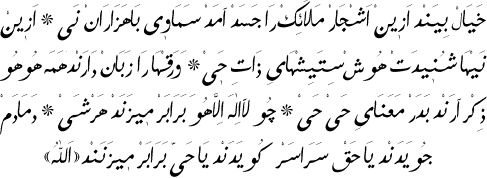 خیال بیند ازین اشجار ملائک را جسد آمد سماوی با هزاران نی ❊ ازین
نیها شنیدت هوش ستیشهای ذات حی ❊ ورقها را زبان دارند همه هو هو
ذکر آرند بدر معنای حی حی ❊ چو لااله الاهو برابر میزند هرشی ❊ دمادم
جویدند یا حق سراسر کویدند یا حیّ برابر میزنند «اللّٰه»